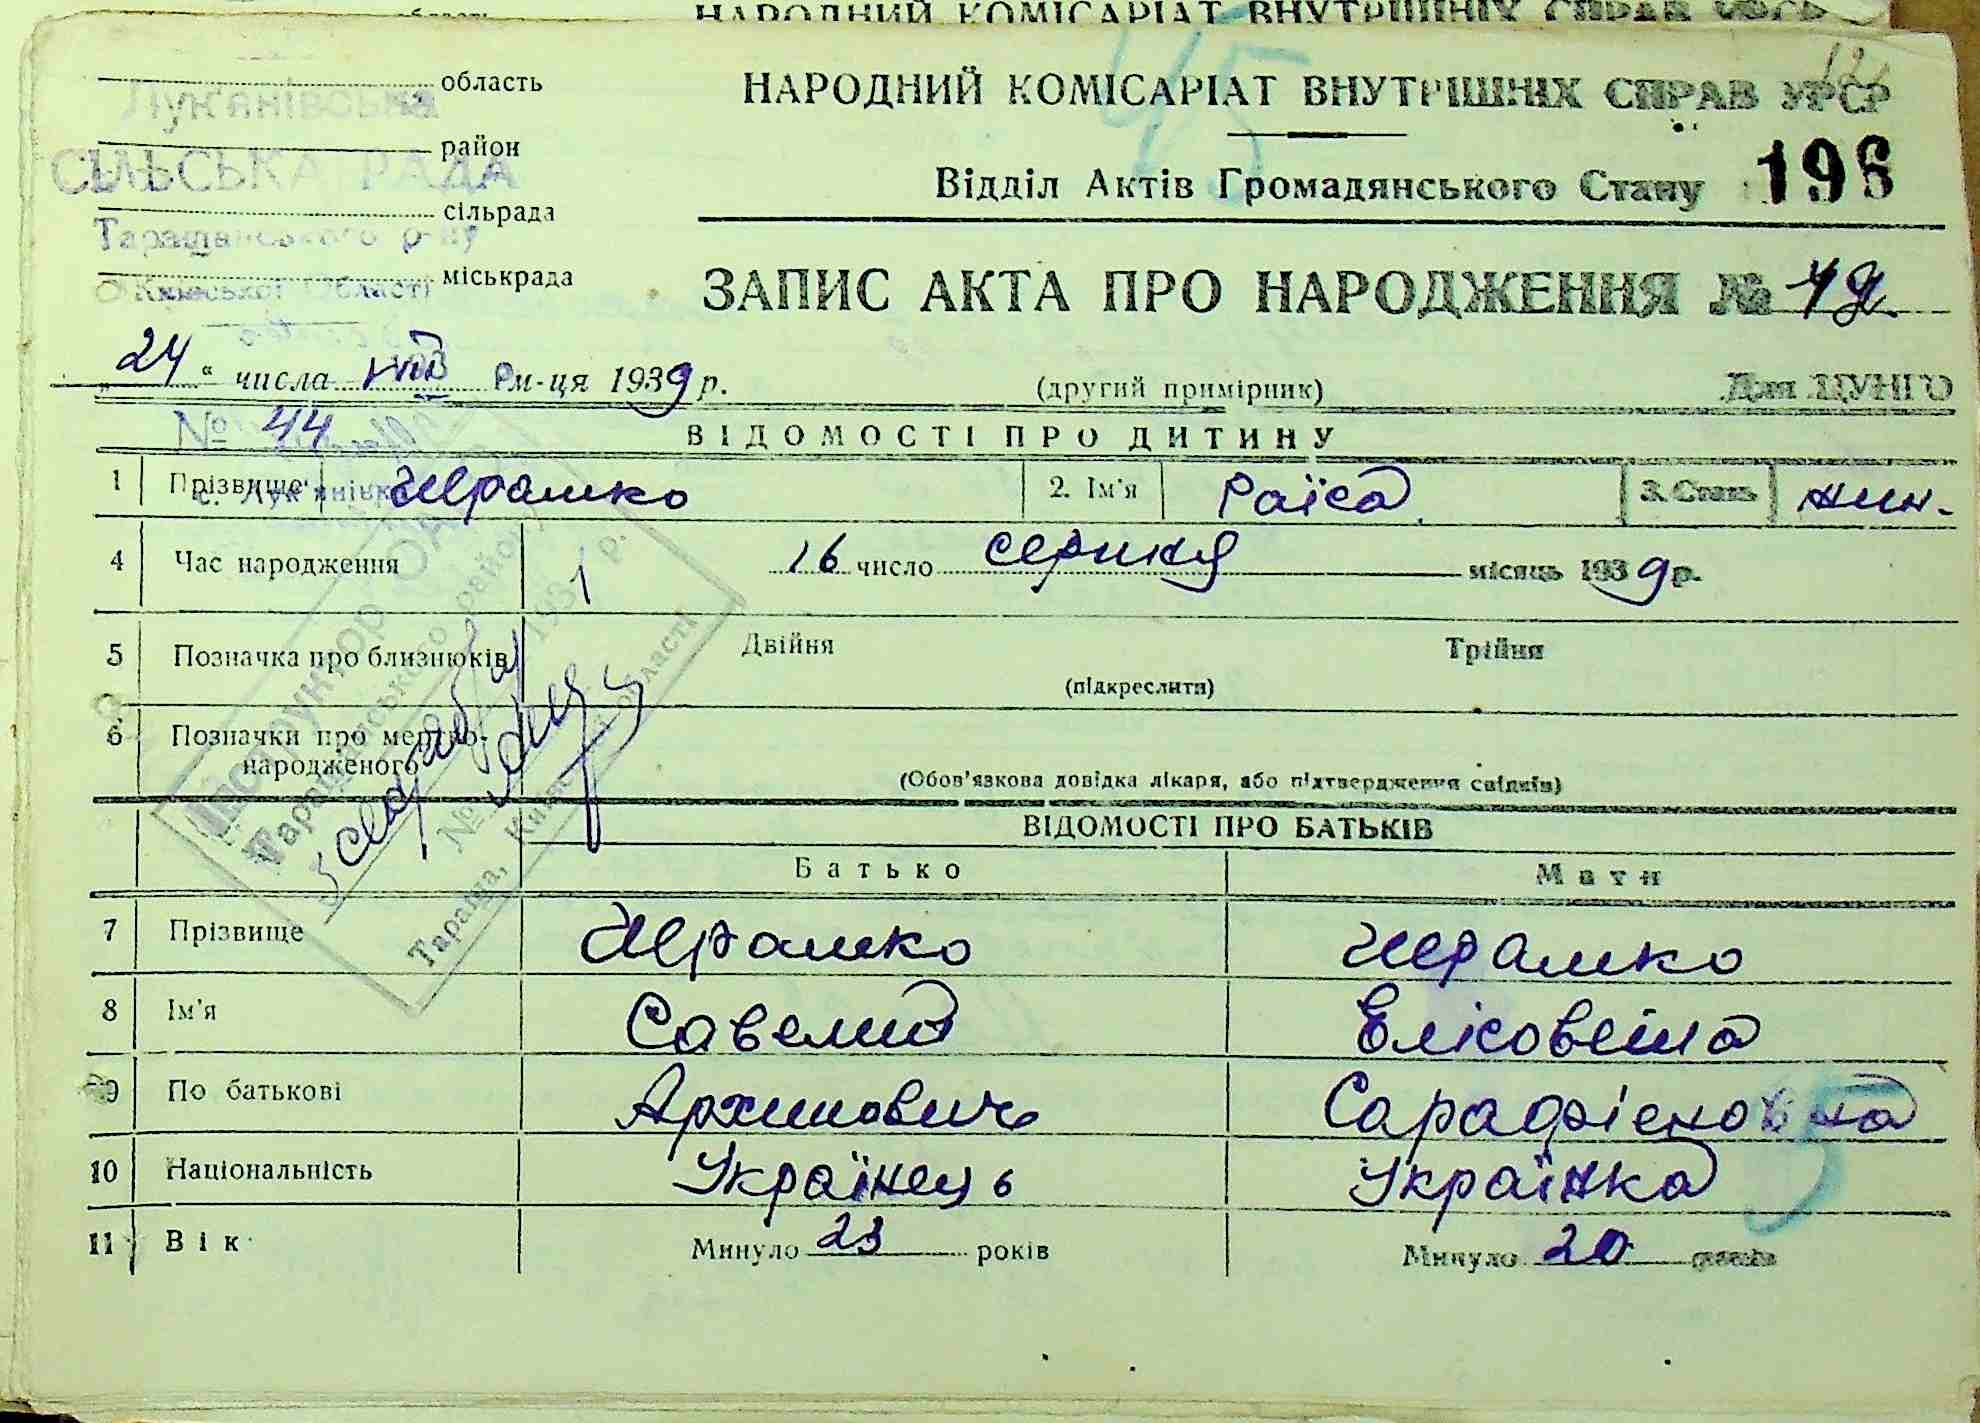 НАРОДНИЙ КОМІСАРІАТ ВНУТРІШНІХ СПРАВ УРСР
область
НАРОДНИЙ КОМІСАРІАТ ВНУТРІШНІХ СПРАВ УРСР
Лук'янівська
район
СІЛЬСЬКА РАДА
Відділ Актів Громадянського Стану 196
сільрада
Таращанського р-ну
міськрада
Київської Області
ЗАПИС АКТА ПРО НАРОДЖЕННЯ №
„24“ числа VIII м-ця 1939 р.
(другий примірник) Для ЦУНГО
№ 44
ВІДОМОСТІ ПРО ДИТИНУ
1 Прізвище Шрамко 2. Ім'я Раїса 3. Стать жин.
с. Лук'янівка
4 Час народження 16 число серпня місяць 1939 р.
5 Позначка про близнюків Двійня Трійня
(підкреслити)
6 Позначки про мертво-
народженого
(Обов'язкова довідка лікаря, або підтвердження свідків)
Інструктор
Таращанського району
193 р.
№
Тараща, Київської області
ВІДОМОСТІ ПРО БАТЬКІВ
Батько Мати
7 Прізвище Шрамко Шрамко
8 Ім'я Савелий Елісовеіта
9 По батькові Архипович Сарафіеновна
10 Національність Українець Українка
11 Вік Минуло 23 років Минуло 20 років